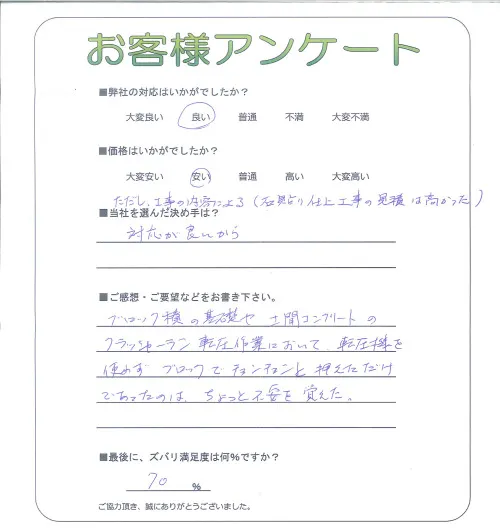 お客様アンケート
■弊社の対応はいかがでしたか？
大変良い 良い 普通 不満 大変不満
■価格はいかがでしたか？
大変安い 安い 普通 高い 大変高い
ただし、工事の内容による（石貼り仕上工事の見積は高かった）
■当社を選んだ決め手は？
対応が良いから
■ご感想・ご要望などをお書き下さい。
ブロック積の基礎や土間コンクリートの
クラッシャーラン転圧作業において、転圧機を
使わずブロックでチョンチョンと押えただけ
であったのは、ちょっと不安を覚えた。
■最後に、ズバリ満足度は何％ですか？
70 ％
ご協力頂き、誠にありがとうございました。